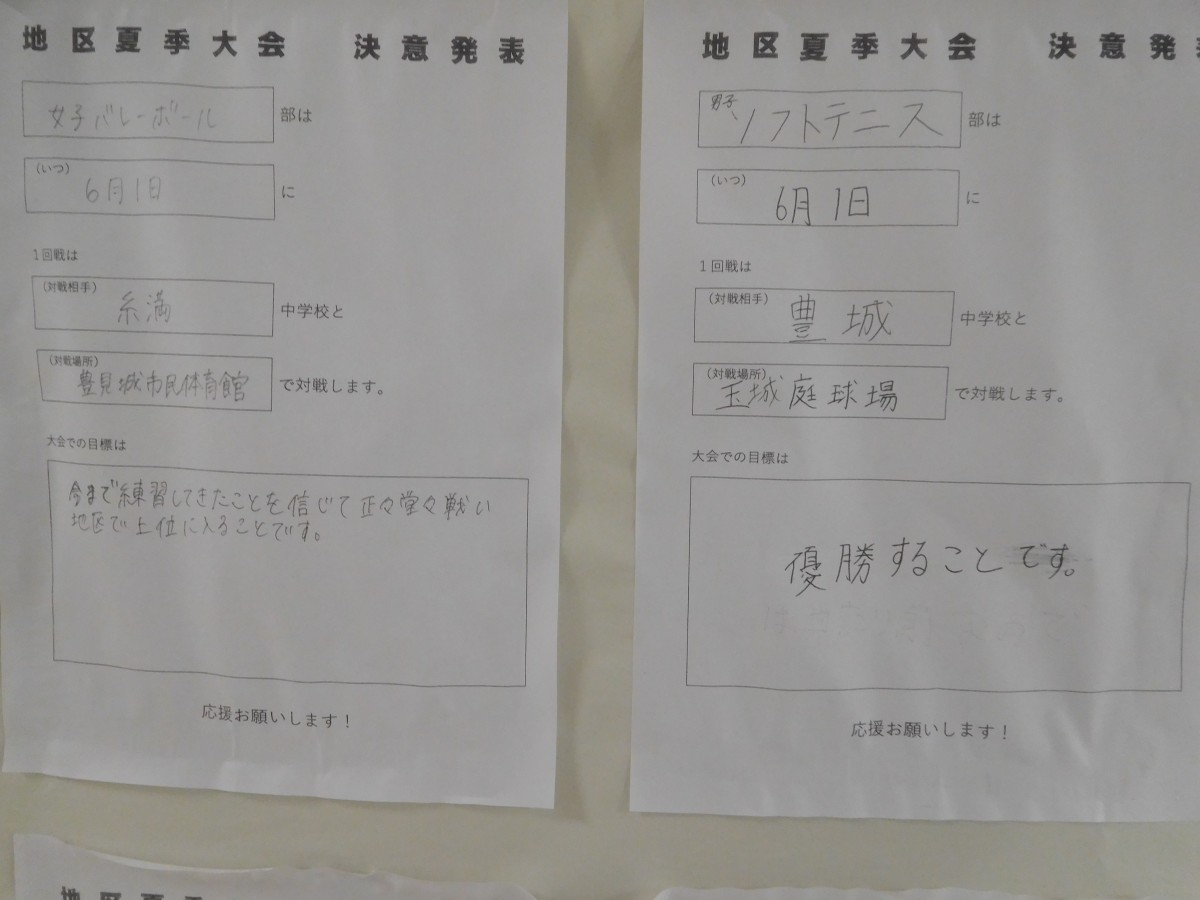 地区夏季大会 決意発表
女子バレーボール 部は
(いつ)
6月1日 に
1回戦は
(対戦相手)
糸満 中学校と
(対戦場所)
豊見城市民体育館 で対戦します。
大会での目標は
今まで練習してきたことを信じて正々堂々戦い
地区で上位に入ることです。
応援お願いします!
地区夏季大会 決意発表
男子
ソフトテニス 部は
(いつ)
6月1日 に
1回戦は
(対戦相手)
豊城 中学校と
(対戦場所)
玉城庭球場 で対戦します。
大会での目標は
優勝することです。
応援お願いします!
地区夏季